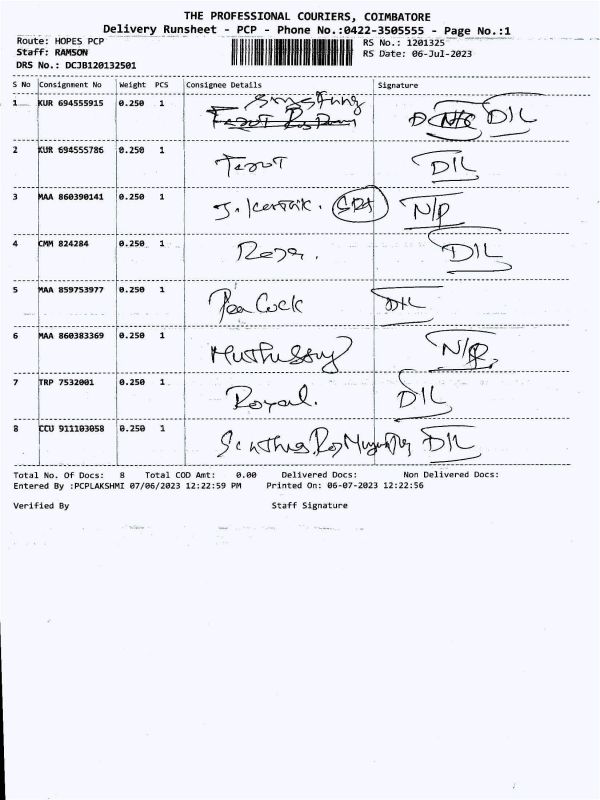 THE PROFESSIONAL COURIERS, COIMBATORE
Delivery Runsheet - PCP - Phone No.:0422-3505555 - Page No.:1
Route: HOPES PCP RS No.: 1201325
Staff: RAMSON RS Date: 06-Jul-2023
DRS No.: DCJB120132501
S No Consignment No Weight PCS Consignee Details Signature
1 KUR 694555915 0.250 1 DIL
2 KUR 694555786 0.250 1 DIL
3 MAA 860390141 0.250 1 N/P
4 CMM 824284 0.250 1 DIL
5 MAA 859753977 0.250 1 Pea Cock DIL
6 MAA 860383369 0.250 1 N/P
7 TRP 7532001 0.250 1 Royal. DIL
8 CCU 911103058 0.250 1 DIL
Total No. Of Docs: 8 Total COD Amt: 0.00 Delivered Docs: Non Delivered Docs:
Entered By :PCPLAKSHMI 07/06/2023 12:22:59 PM Printed On: 06-07-2023 12:22:56
Verified By Staff Signature